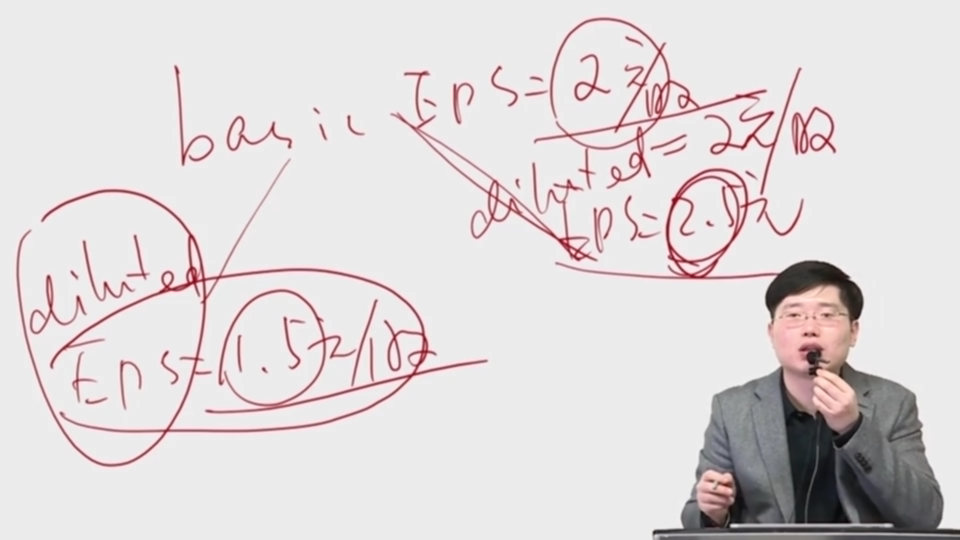 basic EPS=2元/股
diluted=2元/股
EPS=2.5元
diluted
EPS=1.5元/股